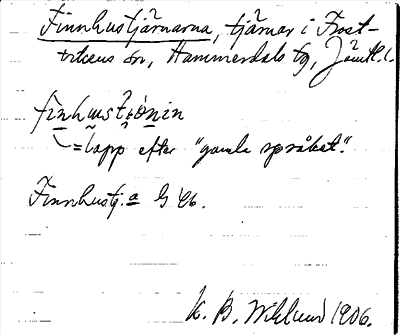 Finnhustjärnarna, tjärnar i Frost-
vikens sn, Hammerdals tg, Jämtl. l.
= lapp efter "gamla språket".
Finnhustj:a G
K. B. Wiklund 1906.